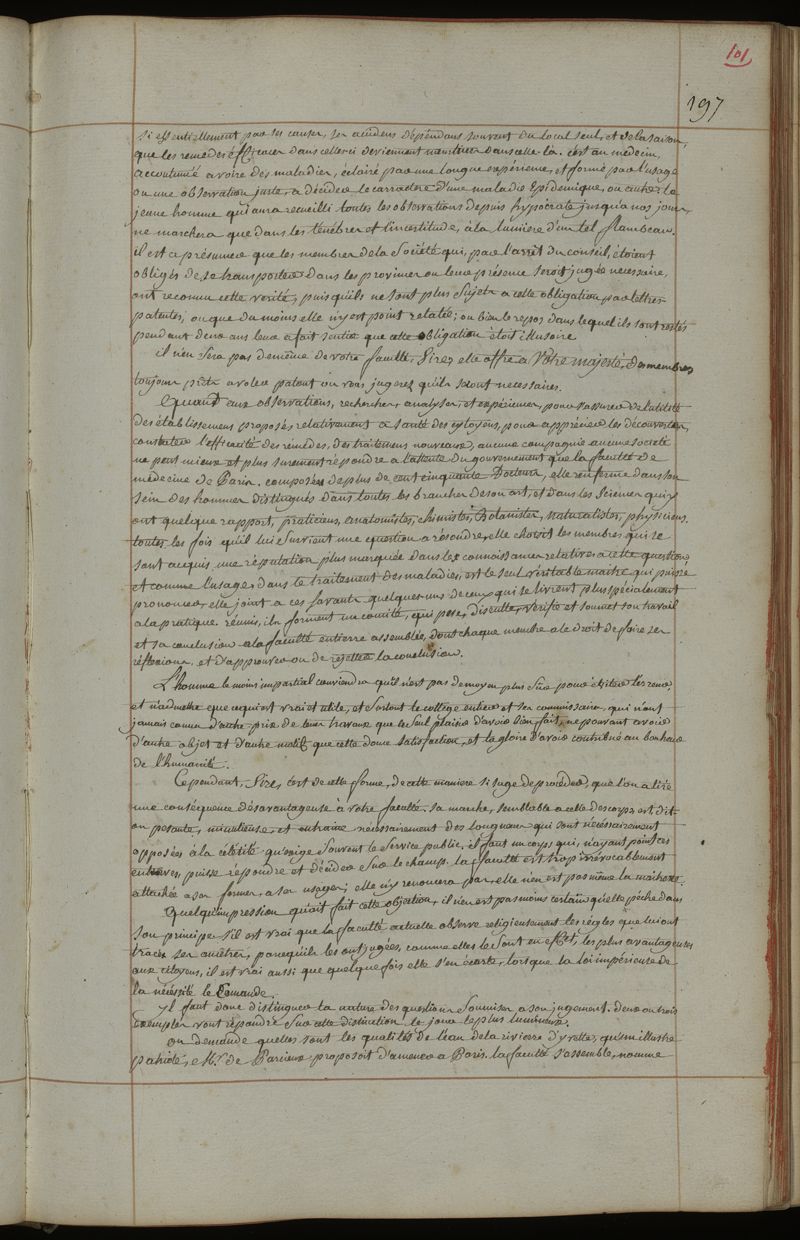 101
197
si essentiellement par ses causes, ses accidens dépendans souvent du local seul, et de la saison,
que les remedes efficaces dans celle-ci deviennent dans celle-la. c'est au médecin,
accoutumé a voir des maladies, éclairé par une longue expérience, et formé par l'usage
ou une observation juste, a décider le carractere d'une maladie Epidemique, ou autre; le
jeune homme qui aura recueilli toutes les observations depuis hypocrate jusqu'a nos jours,
ne marchera que dans les ténébres et l'incertitude, à la lumiere d'un tel flambeau.
il est a présumer que les membres de la Société qui, par l'arrêt du conseil, étoient
obligés de se transporter dans les provinces ou leur présence seroit jugée nécessaire,
ont reconnu cette verité, puisqu'ils ne sont plus Sujets a cette obligation par lettres
patentes, ou que du moins elle n'y est point relatée; ou bien le repos dans lequel ils sont restés
pendant deux ans leur a fait sentir que cette obligation étoit illusoire
il n'en Sera pas de même de votre faculté, Sire, elle offre a Vôtre majesté, des membres
toujours prêts a voler partout ou vous jugerez qu'ils seront necessaires.
Quand aux observations, recherches, analyses, et expériences, pour s'assurer de l'utilité
des établissemens proposés relativement a santé des citoyens, pour apprécier les découvertes,
constater l'efficacité des remédes, des traitemens nouveaux, aucune compagnie aucune societé
ne peut mieux et plus surement répondre a l'attente du gouvernement que la faculté de
médecine de Paris. composée de plus de cent cinquante Docteurs, elle renferme dans son
sein des hommes distingués dans toutes les branches de son art, et dans les Sciences qui y
ont quelque rapport, praticiens, anatomistes, chimistes, Botanistes, naturalistes, physiciens.
toutes les fois qu'il lui survient une question a résoudre, elle choisit les membres qui se
sont acquis une réputation plus marquée dans les connoissances relatives a cette question
et comme l'usage, dans le traitement des maladies, est le seul véritable maitre qui puisse
prononcer, elle joint a ces savants quelques-uns de ceux qui se livrent plus spécialement
a la pratique. réunis, ils forment un comité, qui pese, discute, vérifie et soumet son travail
et sa conclusion a la faculté entierre assemblée, dont chaque membre a le droit de faire ses
réflexions, et d'approuver ou de rejetter la conclusion.
L'homme le moins impartial conviendra qu'il n'est pas de moyen plus sur pour éviter l'erreur,
et n'admettre que ce qui est vrai et utile, et surtout le collége entier et ses commissaires, qui n'ont
jamais connu d'autre prix de leurs travaux que le seul plaisir d'avoir bien fait, ne pouvant avoir
d'autre objet et d'autre motif que cette douce satisfaction, et la gloire d'avoir contribué au bonheur
de l'humanité.
Cependant, Sire, c'est de cette forme, de cette maniere si sage de procéder, que l'on a tiré
une conséquence désavantageuse à votre faculté. sa marche, semblable a celle des corps, est dit-
on pesante, minutieuse, et entraine nécessairement des longueurs qui sont nécessairement
opposées à la célérité qu'exige souvent le Service public, il faut un corps qui, n'ayant point ces
entraves, puisse répondre et décider sur le champ. la faculté est trop irrévocablement
attachée a ses formes, a ses usages; elle n'y renoncera pas, elle n'en est pas même la maitresse.
Quelqu'impression qu'ait fait cette objection, il n'en est pas moins certain qu'elle péche dans
son principe s'il est vrai que la faculté actuelle observe religieusement les régles que lui ont
tracées ses ancêtres, parcequ'ils les ont jugées, comme elles le sont en effet, les plus avantageuses
aux citoyens, il est vrai aussi que quelque fois elle s'en écarte, lorsque la loi impérieuse de
la nécessité le comande.
Il faut donc distinguer la nature des questions soumises a son jugement. deux ou trois
exemples vont répandre sur cette distinction le jour le plus lumineux.
on demande quelles sont les qualités de l'eau de la rivierre d'yvette, qu'un illustre
patriote, Mr. de Parcieux proposoit d'amener a Paris. la faculté s'assemble, nomme